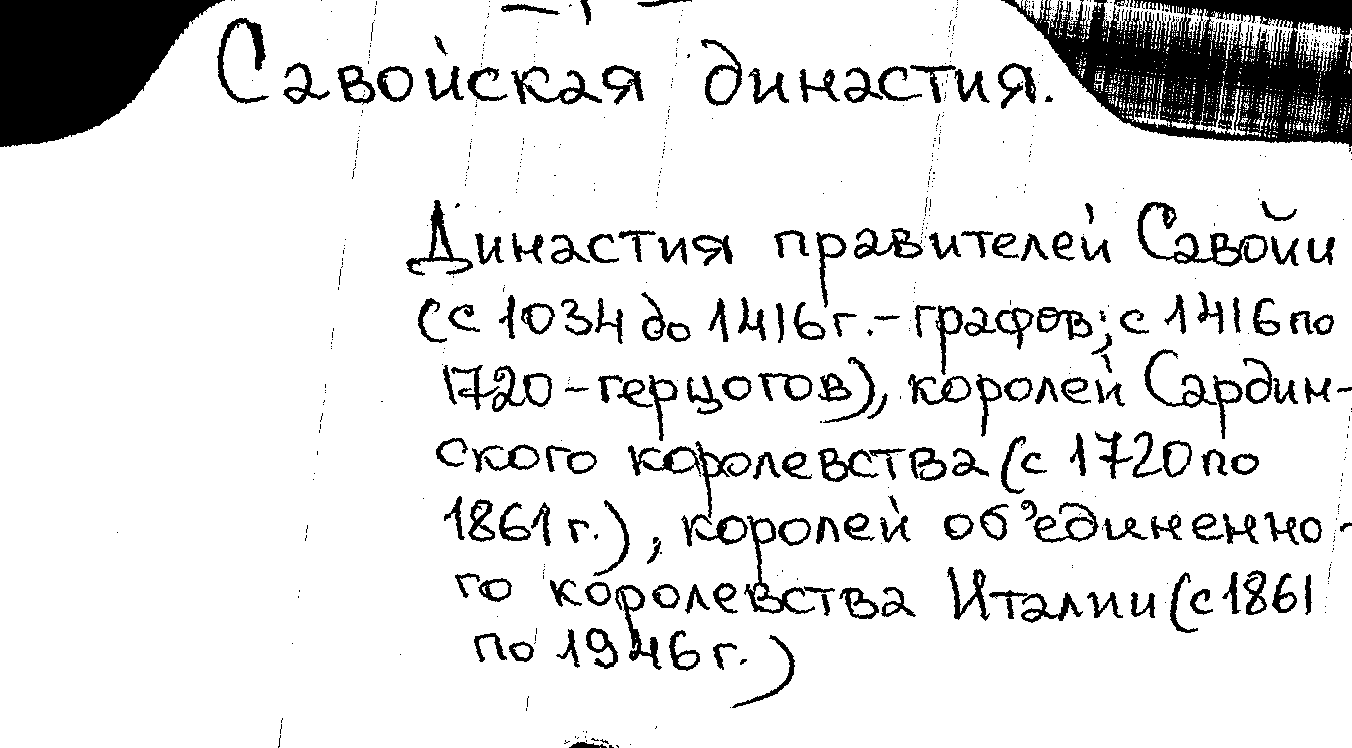 Савойская династия.
Династия правителей Савойи
(с 1034 до 1416 г. - графов; с 1416 по
1720 - герцогов), королей Сардин-
ского королевства (с 1720 по
1861 г.), королей об'единенно-
го королевства Италии (с 1861
по 1946 г.)